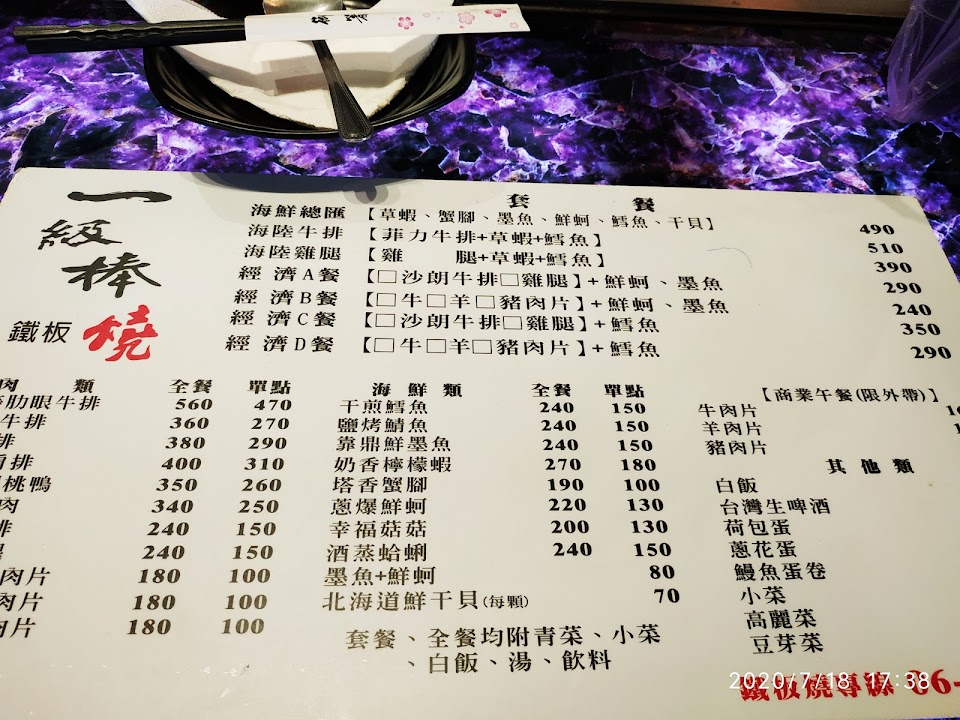 一級棒
鐵板 燒
套 餐
海鮮總匯 【草蝦、蟹腳、墨魚、鮮蚵、鱈魚、干貝】 490
海陸牛排 【菲力牛排+草蝦+鱈魚】 510
海陸雞腿 【雞 腿+草蝦+鱈魚】 390
經濟A餐 【□沙朗牛排□雞腿】+鮮蚵、墨魚 290
經濟B餐 【□牛□羊□豬肉片】+鮮蚵、墨魚 240
經濟C餐 【□沙朗牛排□雞腿】+鱈魚 350
經濟D餐 【□牛□羊□豬肉片】+鱈魚 290
肉 類 全餐 單點
肋眼牛排 560 470
牛排 360 270
排 380 290
排 400 310
桃鴨 350 260
肉 340 250
排 240 150
240 150
肉片 180 100
肉片 180 100
肉片 180 100
海鮮類 全餐 單點
干煎鱈魚 240 150
鹽烤鯖魚 240 150
靠鼎鮮墨魚 240 150
奶香檸檬蝦 270 180
塔香蟹腳 190 100
蔥爆鮮蚵 220 130
幸福菇菇 200 130
酒蒸蛤蜊 240 150
墨魚+鮮蚵 80
北海道鮮干貝(每顆) 70
套餐、全餐均附青菜、小菜
、白飯、湯、飲料
【商業午餐(限外帶)】
牛肉片
羊肉片
豬肉片
其他類
白飯
台灣生啤酒
荷包蛋
蔥花蛋
鰻魚蛋卷
小菜
高麗菜
豆芽菜
鐵板燒專線 06-
2020/7/18 17:38